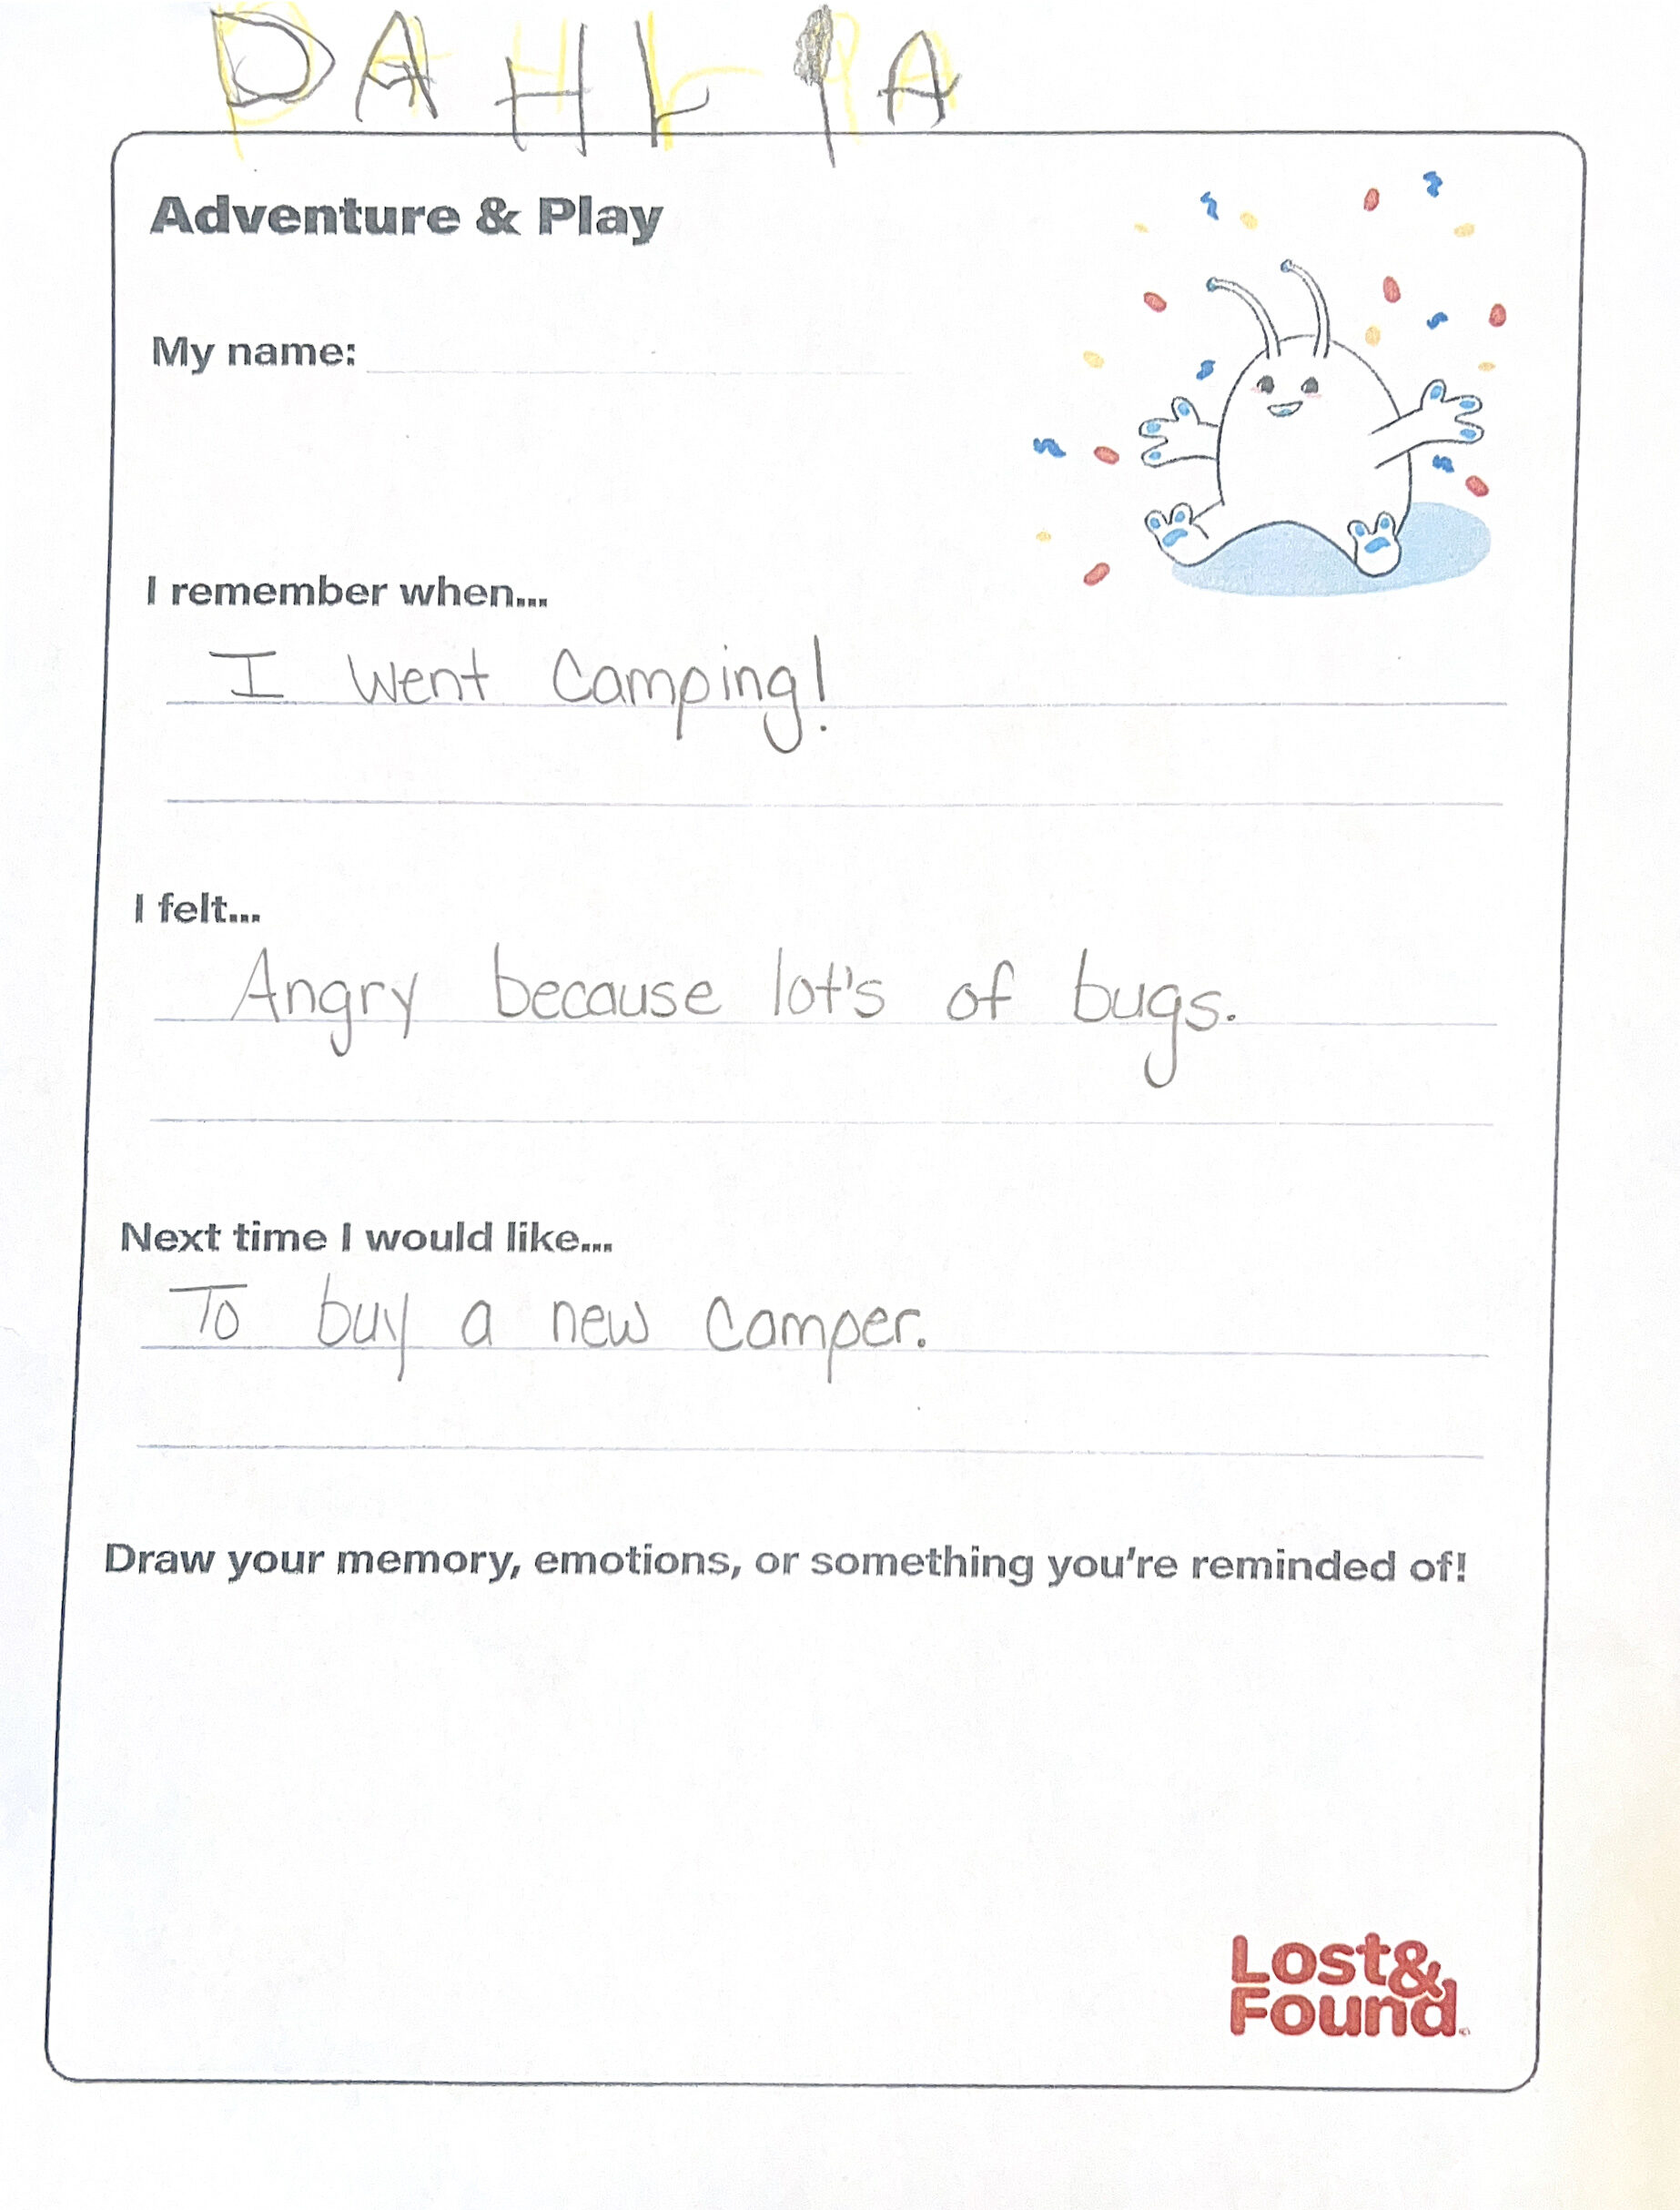 DAHLIA
Adventure & Play
My name:
I remember when...
I went camping!
I felt...
Angry because lot's of bugs.
Next time I would like...
To buy a new camper.
Draw your memory, emotions, or something you're reminded of!
Lost&
Found